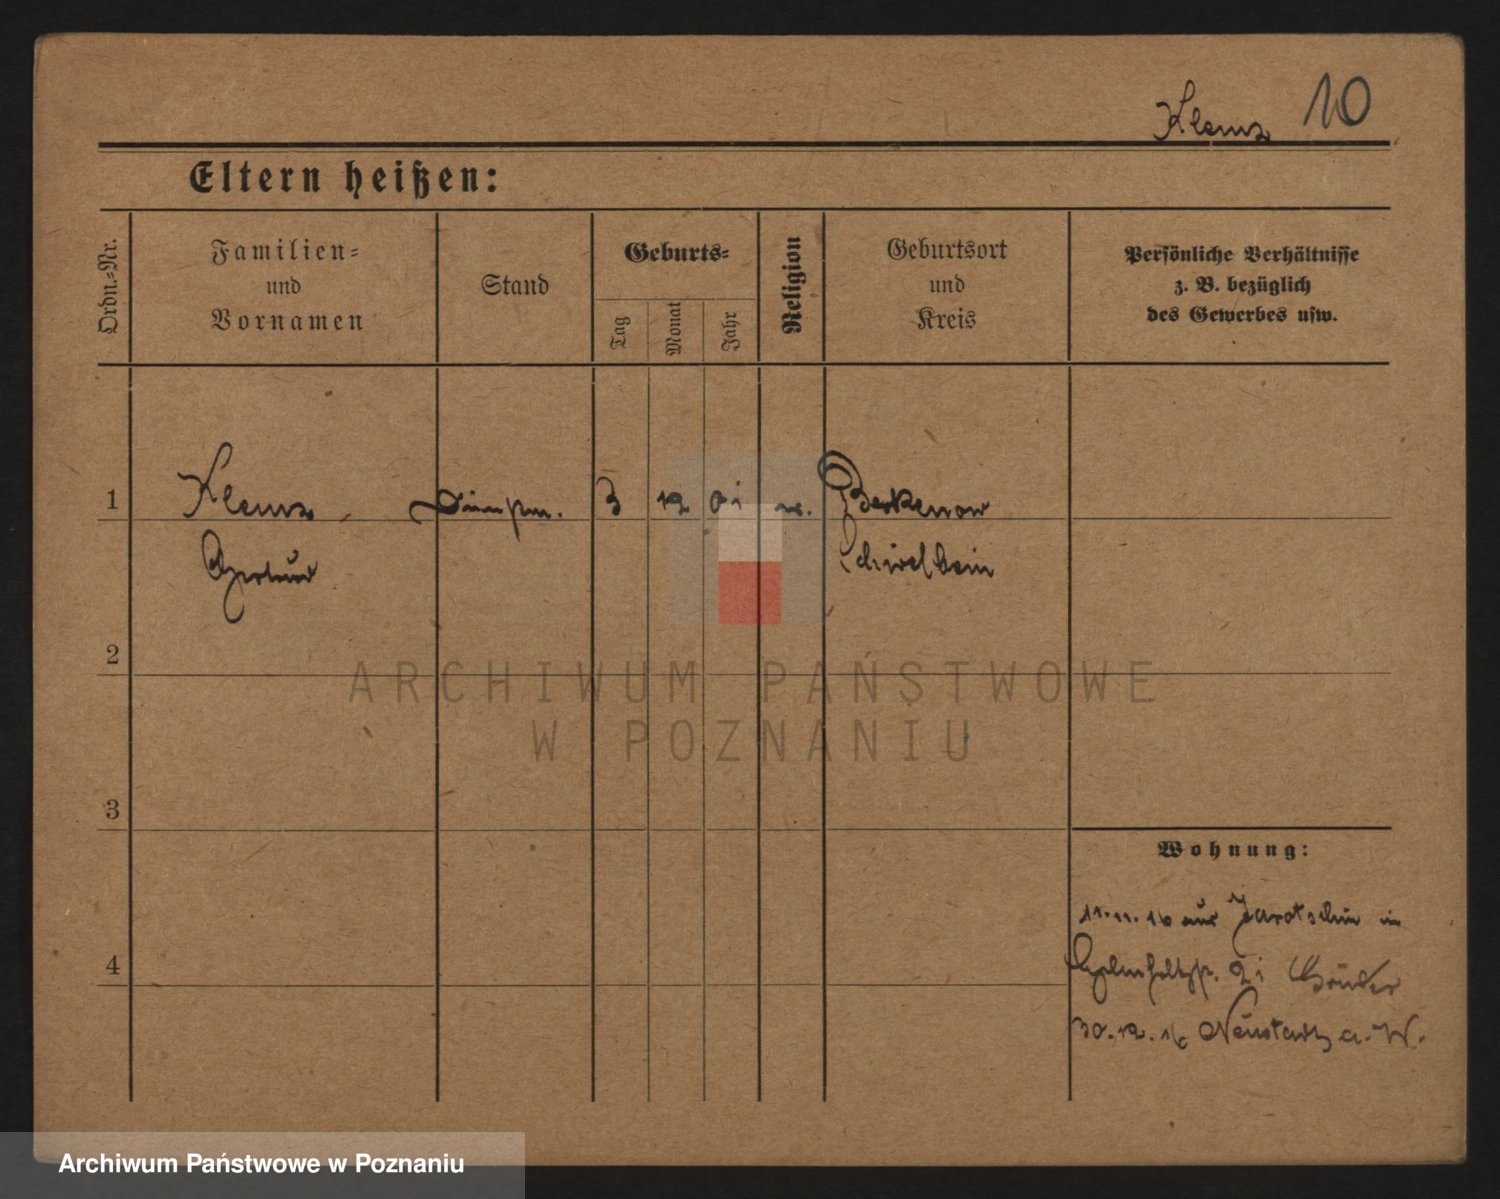 Klemz 10
Eltern heißen:
Ordn.-Nr.
Familien-
und
Vornamen
Stand
Geburts-
Tag
Monat
Jahr
Religion
Geburtsort
und
Kreis
Persönliche Verhältnisse
z. B. bezüglich
des Gewerbes usw.
1 Klemz 3 12 01 Berkenow
Gertrud Schivelbein
2
ARCHIWUM PAŃSTWOWE
W POZNANIU
3
Wohnung:
11.11.16 aus Jarotschin in
4 21 Bruder
30.12.16 Neustadt a. W.
Archiwum Państwowe w Poznaniu